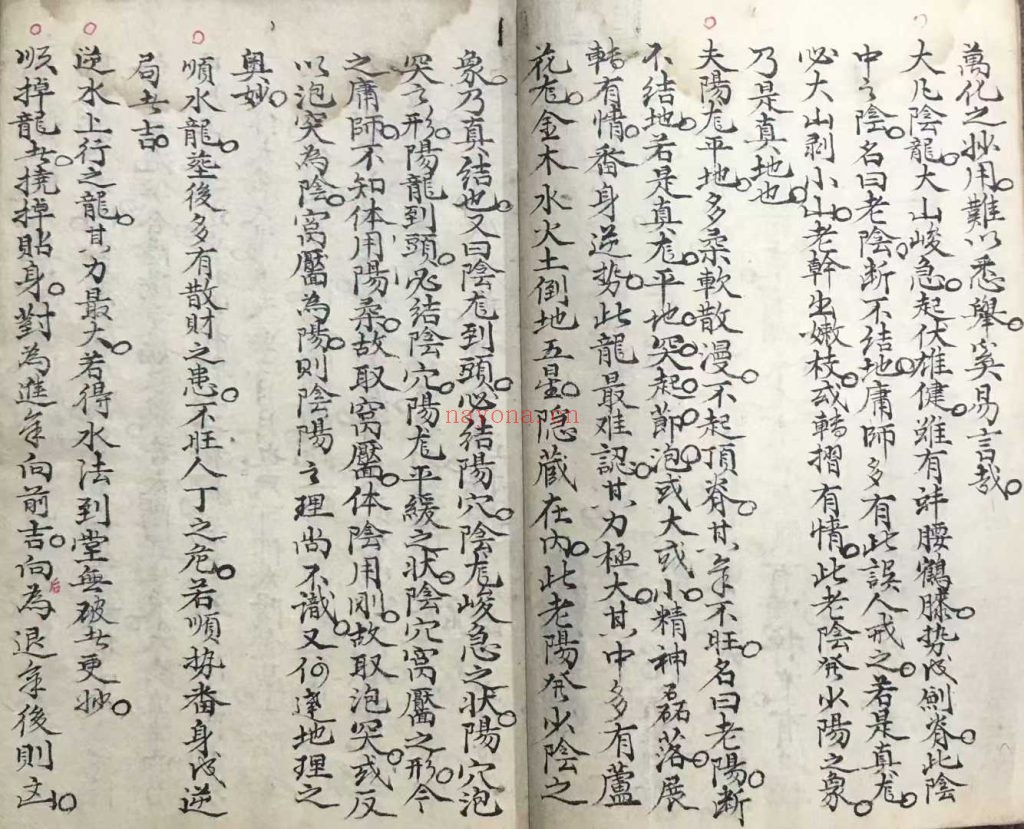 萬化之妙用。難以悉舉。奚易言哉。
大凡陰龍。大山峻急。起伏雄健。雖有蜂腰鶴膝。勢成鯽脊。此陰
中之陰。名曰老陰。断不结地。庸師多有此誤人。戒之。若是真龙。
必大山剥小山。老幹生嫩枝。或轉摺有情。此老陰發少陽之象。
乃是真地也。
夫陽龙平地。多柔軟散漫。不起頂脊。其氣不旺。名曰老陽。断
不结地。若是真龙。平地突起節泡。或大或小。精神磊落。展
轉有情。番身逆势。此龍最难認。其力極大。其中多有蘆
花。龙金木水火土倒地五星。隐藏在内。此老陽發少陰之
象。乃真结也。又曰陰龙到頭。必结陽穴。陰龙峻急之状。陽穴泡
突之形。陽龍到頭。必结陰穴。陽龙平緩之状。陰穴窩靨之形。今
之庸師。不知体用陽柔。故取窩靨。体陰用刚。故取泡突。或反
以泡突為陰。窩靨為陽。則陰陽之理尚不識。又何達地理之
奥妙。
順水龍。塟後多有散財之患。不旺人丁之危。若順势番身成逆
局者吉。
逆水上行之龍。其力最大。若得水法到堂無破者更妙。
順掉龍者。撓掉貼身。對為進氣向前吉。向后為退氣後則凶。
nayona.cn